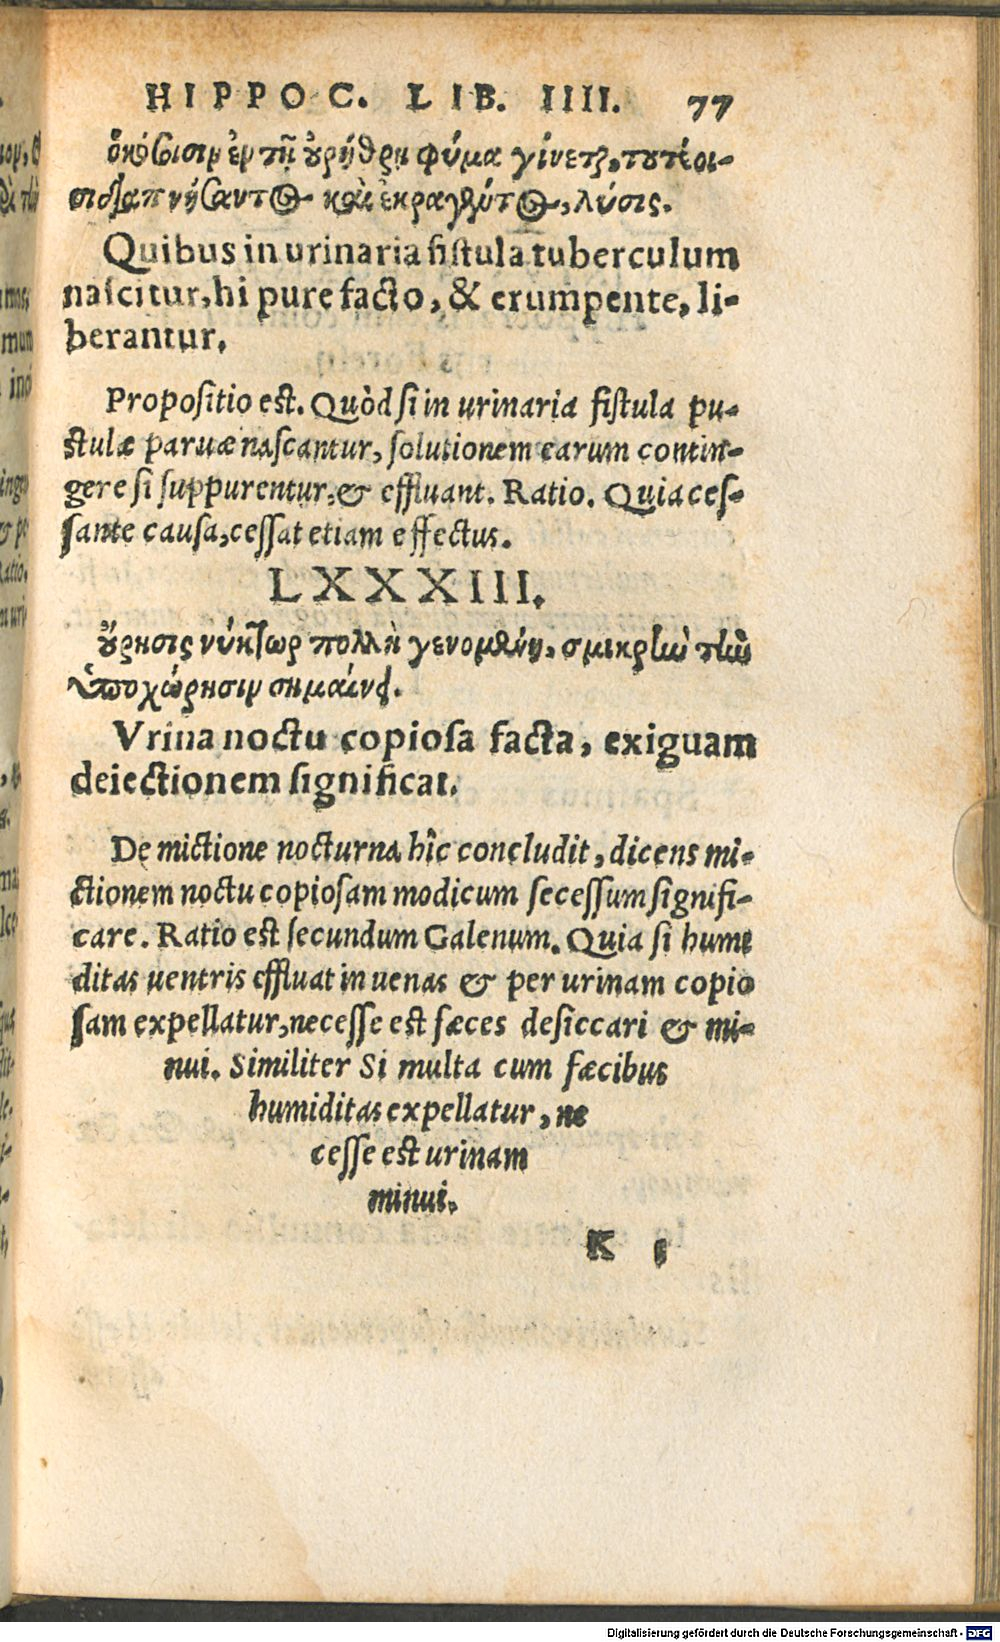 HIPPOC. LIB. IIII. 77
ὁκόσοισιν ἐν τῇ οὐρήθρῃ φύμα γίνεται, τουτέοι-
σι διαπυήσαντος καὶ ἐκραγέντος, λύσις.
Quibus in urinaria fistula tuberculum
nascitur, hi pure facto, & erumpente, li-
berantur.
Propositio est. Quòd si in urinaria fistula pu-
stulæ paruæ nascantur, solutionem earum contin-
gere si suppurentur, & effluant. Ratio. Quia ces-
sante causa, cessat etiam effectus.
LXXXIII.
οὔρησις νύκτωρ πολλὴ γενομένη, σμικρὴν τὴν
ὑποχώρησιν σημαίνει.
Vrina noctu copiosa facta, exiguam
deiectionem significat.
De mictione nocturna hîc concludit, dicens mi-
ctionem noctu copiosam modicum secessum signifi-
care. Ratio est secundum Galenum. Quia si humi
ditas uentris effluat in uenas & per urinam copio
sam expellatur, necesse est fæces desiccari & mi-
nui. Similiter Si multa cum fæcibus
humiditas expellatur, ne
cesse est urinam
minui.
K 5
Digitalisierung gefördert durch die Deutsche Forschungsgemeinschaft - DFG